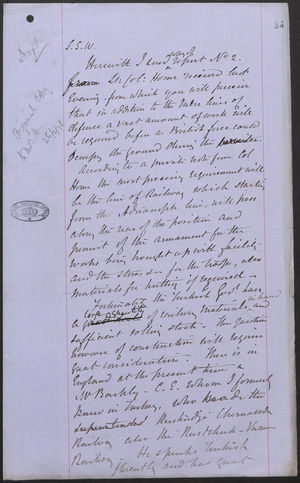 84
S.S.W.
Herewith I send copy of report No 2.
from Lt. Col: Home received last
Evening from which you will perceive
that in addition to the Outer lines of
defence a vast amount of work will
be required before a British force could
Occupy the Ground during the
According to a private note from Col
Home the most pressing requirement will
be the line of Railway which starting
from the Adrianople line, will pass
along the rear of the position and
permit of the armament for the
works being brought up with facility
and the stores &c for the troops, also
materials for hutting if required —
Fortunately the Turkish Govt. have
a large quantity of railway materials in hand, and
sufficient rolling stock. The question
however of construction will require
vast consideration — There is in
England at the present time a
Mr Barkley. C.E. Whom I formerly
knew in Turkey, who made the
superintended Kustendje Chernavoda
Railway also the Rustchuk - Varna
Railway. He speaks Turkish
fluently and has great